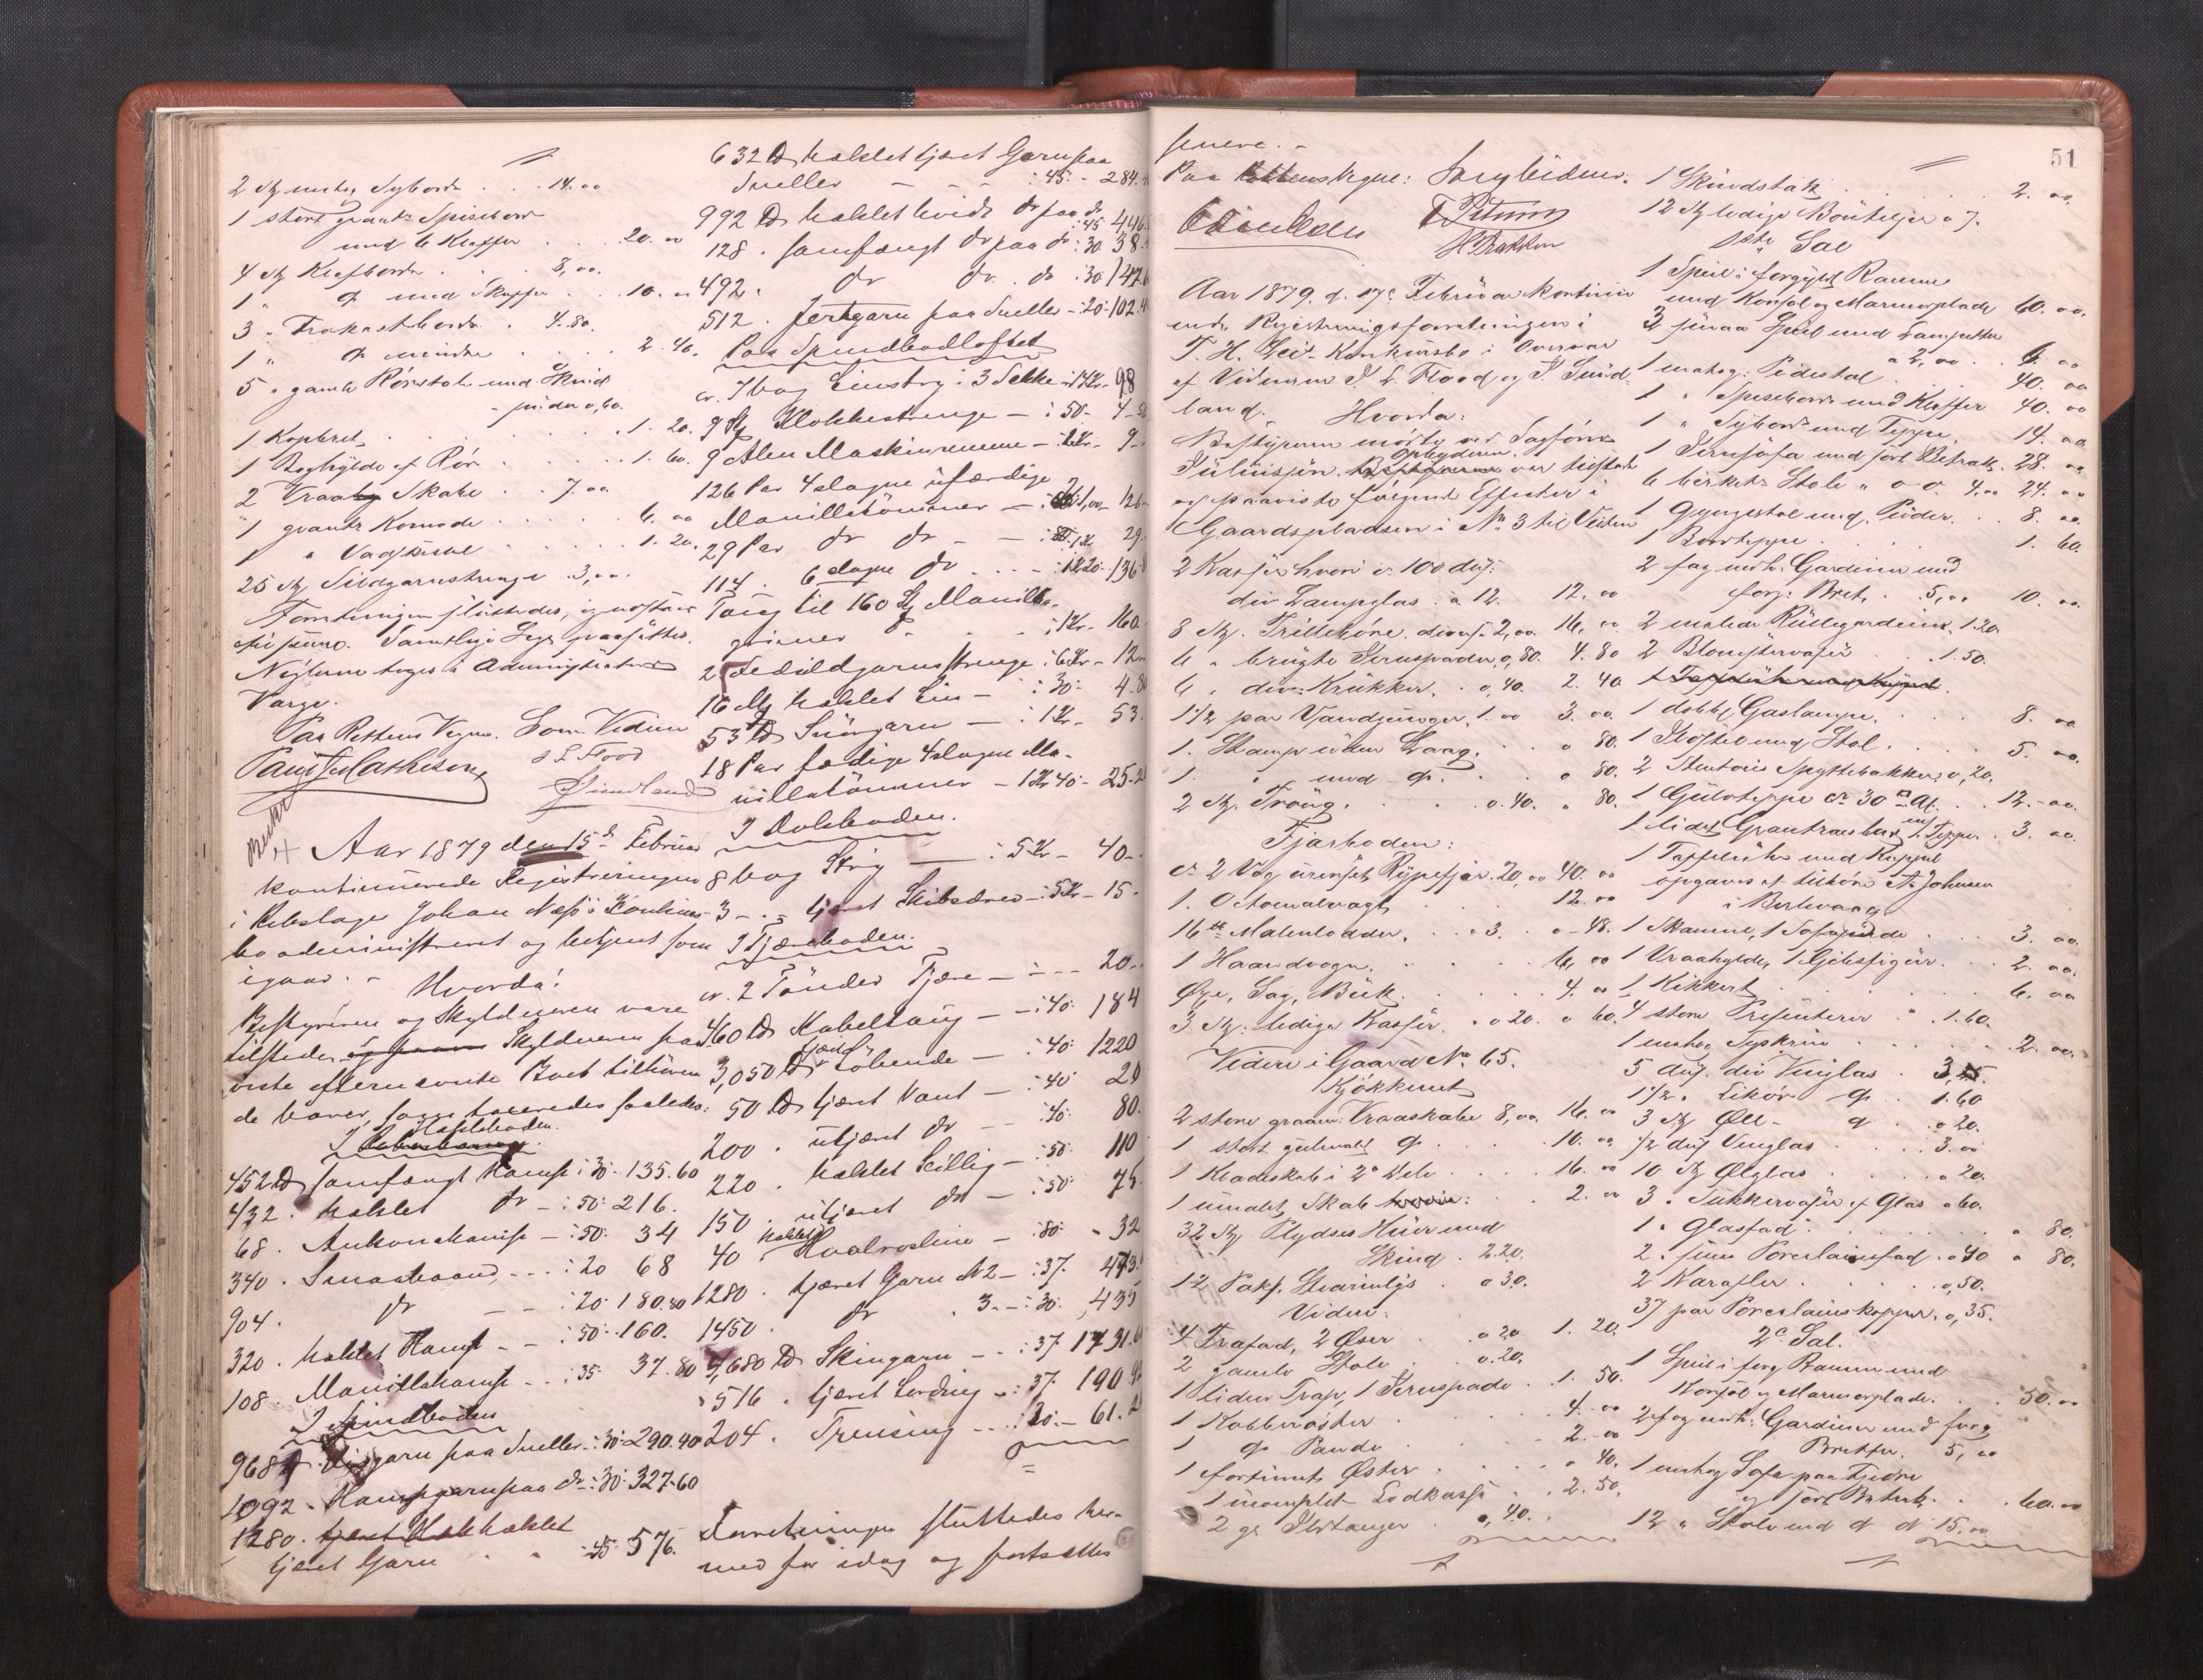 2 St mahg Syborde . . 14. 00
1 stort grant Spisebord
med 6 Klapper . . 20. 00
4 St Klafborde . . . 8,00.
1 " do med Skuffer . . 10. "
3 " Frokostborde . 4.80.
1 " do mindre . . . . 2. 40.
5 " gamle Rørstole med Skind
puder 0,60.
1 Kopibret . . . . . . . . 1. 20.
1 Boghylde af Rør . . . . . 1. 60.
2 Vraa Skabe . . 7. 00
1 grant Komode . . . . . 6. 00
1 " Vadskestol . . . . . 1. 20.
25 St Sildgarnstrenge . 3,00.
Forretningen sluttedes,
Samtlige Lægs paasattes.
Nøglerne toges i Administrators
Varge.
Paa Rettens Vegne. Som Vidner
S L Flood
Sundland
Aar 1879 den 15de Februar
kontinuerede Registreringen
i Rebslager Johan Næss's Konkurs-
bo administreret og betjent som
igaar. - Hvorda!
Bestyreren og Skyldneren vare
tilstede. Skyldneren paa
viste efternævnte Boet tilhøren
de varer, som taxeredes saaledes:
Hampeboden.
452 ℔ samfængt Hamp : 30 - 135.60
432 . heklet do - : 50: 216.
68 . Ankonahamp - : 50: 34
340 . Smaabaand - - : 20 68
904 . do - - : 20: 180.80
320 . heklet Hamp - - : 50: 160.
108 . Manillahamp - - : 35 37.80
I Spindboden
968 ℔ garn paa Sneller - : 30: 290.40
1092 - Hampgarn paa do : 30: 327.60
1280. heklet
tjæret Garn - - : 45: 576.
632 ℔ heklet tjæret Garn paa
Sneller - - - : 45: - 284.
992 ℔ heklet hvidt do paa do : 45 446
128 . samfængt do paa do : 30 38.
492 . do do . do : 30 147.
512 . fertgarn paa Sneller - : 20: 102.4
Paa Spindbodloftet
cr. 7 Vog Linstry i 3 Sække : 14 Kr. 98
9 St Klokkestrenge - : 50 - 4-50
9 Alen Maskinremme - : 1 Kr - 9-
126 Par 4 slagne ufærdige
Manillatömmer - : 1,00 126-
29 Par do do - - : 1 Kr 29.
114 . 6 slagne do - - - : 1.20 - 136.
Taug til 160 St Manilla-
grimer - - - : 1 Kr - 160.
2 Sildgarnsstrenge : 6 Kr - 12-
16 Mk heklet Lin - : 30: 4-80
53 ℔ Snörgarn - : 1 Kr - 53.
18 Par færdige 4 slagne Ma-
nillatömmer - 1 Kr 40 - 25.2
I Dokboden.
8 Vog Strig - : 5 Kr - 40-.
3 - . - tjæret Skibsdrev - : 5 Kr - 15.
I Tjæreboden.
cr. 2 Tönder Tjære - - - - 20-.
460 ℔ Kabeltaug - - : 40: 184
3,050 ℔ tjæret Löbende - : 40: 1220
50 ℔ tjæret Vant - : 40: 20
200 . utjæret do - - : 40: 80.
220 . heklet - : 50: 110
150 . utjæret do - : 50: 75.
40 . heklet Hvalrosline - : 80: - 32
1280 . tjæret Garn N 2 - : 37. 473.
1450 . do . 3. - : 30: 435
4,680 ℔ Skingarn - - : 37. 1731.6
516 . tjæret Lording - : 37. 190.9
204 . Trensing - - : 30. - 61.2
Forretningen sluttedes her-
med for idag og fortsættes
51
senere. -
Paa Rettens Vegne: Som Vidner.
H Bakken
Aar 1879. d. 17de Februar kontinu
erede Registreringsforretningen i
T. H. Konkursbo i Overvær
af Vidnerne S. L. Flood og S. Sund-
land. Hvorda:
Bestyreren mødte ved Sagfører
Juliussen. Opbyderen var tilstede
og paaviste følgende Effekter i
Gaardspladsen i No 3 til Veiten
2 Kasser hvori cr 100 dus:
div Lampglas . a 12. 12. 00
8 St. Trillebøre. divers. 2,00 16,00
6 " brugte Jernspader, 0,80. 4. 80
6 " div: Krukker. . 0,40. 2. 40
1 1/2 par Vandspænger, 1. 00 3. 00.
1. Stamp uden Laag. . . 0 80.
1. " med do. . . . 0 80.
2 St. Traug. . . . 0. 40. " 80.
Fjærboden:
cr 2 Vog urenset Rypefjær 20,00 40. 00
1. Octomalvægt . . . . 12. 00
16 St Malenlodder. . . 3. . 0-48.
1 Haandvogn. . . . . 6, 00
Øxe, Sag, Buk . . . . 4. 00
3 St: ledige Kasser. . 0 20. 0 60.
Videre i Gaard No 65.
Kjøkkenet
2 store graam. Vraaskabe 8,00. 16. 00
1 stort gulmalt do . . . 10. 00
1 Klædeskab i 2 Dele . . . 16. 00
1 umalet Skab . . 2. 00
32 St Plydses Huer med
Skind . 2.20.
12 Pakk. Stearinlys . 0 30.
Viden:
4 Træfad, 2 Øser . . 0 20 1. 20.
2 gamle Stole . . 0. 20.
1 liden Trap, 1 Jernspade . 1. 50.
1 Kobberøster . . . . 4. 00
1 do Pande . . . . 2. 00
1 fortinnet Øster . . . . 0 40.
1 incomplet Lodkasse . . 2. 50.
2 gl Ildtanger . 0,40.
1 Skindstak . . . . . . 2. 00.
12 St ledige Bouteljer a 7.
1ste Sal
1 Speil i forgyldt Ramme
med Konsol og Marmorplade 60. 00.
3 smaa Speil med Lampetter
a 2,00 . . 6. 00
1 mahog: Pidestal . . . . 40. 00
1 " Spisebord med Klapper 40. 00
1 " Sybord med Teppe. 14. 00
1 Jernsofa med sort Betræk. 28. 00
6 birkets Stole " o o. 4.00 24. 00
1 Gyngestol med Puder. . . 8. 00.
1 Bordteppe . . . . . 1. 60.
2 fag merk: Gardiner med
forg: Bret. . 5,00 10. 00.
2 malede Rullegardiner. 1.20.
2 Blomstervaser . . . 1.50.
1 dobb Gaslampe. . . . 8. 00
1 med Stol . . . . . 5. 00
2 Spyttebakker, 0,20.
1 Gulvteppe cr 30 Al. . . 12. - 00.
1 lidet Grantræsbord med Teppe . 3. 00.
1 Taffeluhr med Kuppel
opgaves at tilhøre A. Johnsen
i Berlevaag
1 Skammel, 1 Sofapude . . . 3. 00.
1 Vraahylde, 1 Gibsfigur. . . 2. 00.
1 Kikkert . . . . . . . . 6. 00
4 store Presenterer . " . 1.60.
1 mahog Syskrin . . . . . . 2. 00.
5 dus. div Vinglas . 3,
1 1/2 " Likør do . 1.60
3 St Øll - do . . 0 20.
1/2 dus Vinglas . . . 3. 00
10 St Ølglas . . . . 0 20.
3 " Sukkervaser af Glas 0 60.
1 " Glasfad . . . . . . . 0 80.
2 " smaa Porcelainsfad . 0 40 0 80.
2 Karafler . . . . . 0,50.
37 par Porcelainskopper. 0,35.
2den Sal.
1 Speil i forg Ramme med
Konsol og Marmorplade. . . 50. 00
2 fag merk: Gardiner med forg
Bretter. 5, 00
1 mahog Sofa paa Fjedre
og sort Betræk. . . 60. 00
12 " Stole med do do 15,00